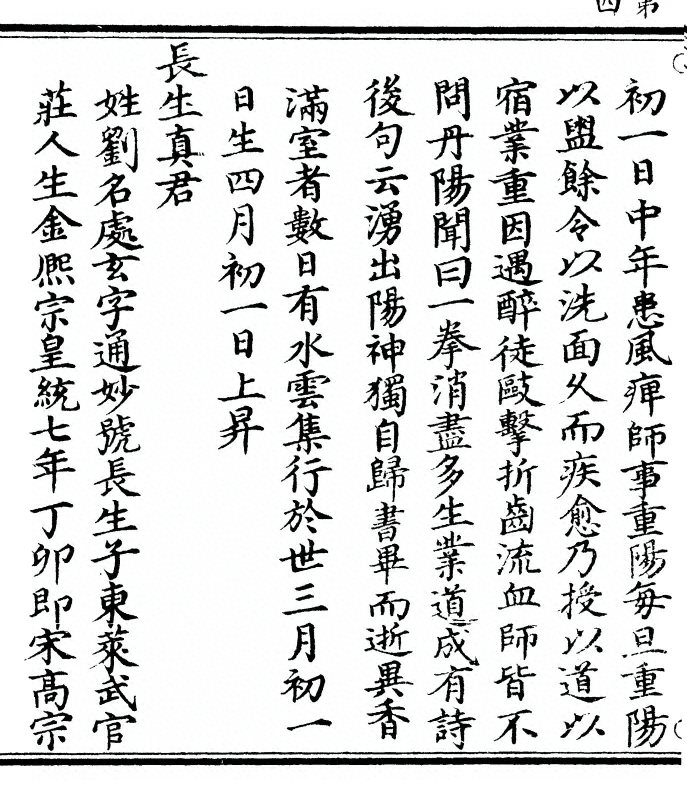 第四
初一日中年患風痺師事重陽每旦重陽
以盥餘令以洗面久而疾愈乃授以道以
宿業重因遇醉徒毆擊折齒流血師皆不
問丹陽聞曰一拳消盡多生業道成有詩
後句云湧出陽神獨自歸書畢而逝異香
滿室者數日有水雲集行於世三月初一
日生四月初一日上昇
長生真君
姓劉名處玄字通妙號長生子東萊武官
莊人生金熈宗皇統七年丁卯即宋高宗